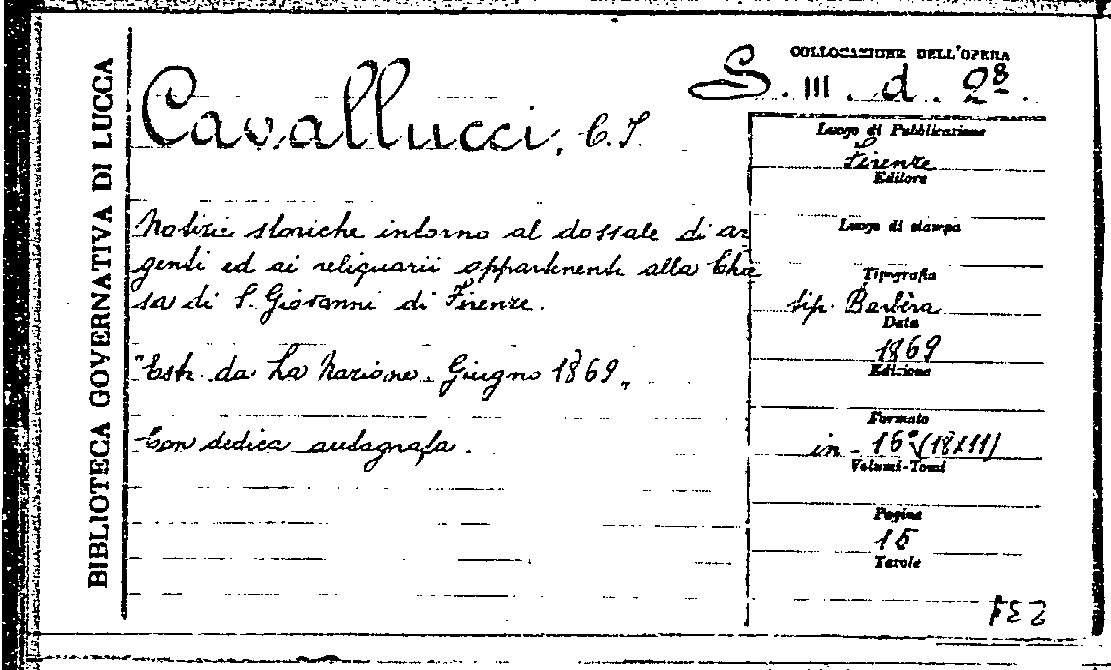 BIBLIOTECA GOVERNATIVA DI LUCCA
COLLOCAZIONE DELL'OPERA
S. III. d. 28.
Cavallucci, C. I.
Notizie storiche intorno al dossale di ar
genti ed ai reliquarii appartenenti alla Chie
sa di S. Giovanni di Firenze.
"Estr. da La Nazione. Giugno 1869„
Con dedica autografa.
Luogo di Pubblicazione
Firenze
Editore
Luogo di stampa
Tipografia
tip. Barbèra
Data
1869
Edizione
Formato
in - 16° (18x11)
Volumi-Tomi
Pagine
15
Tavole